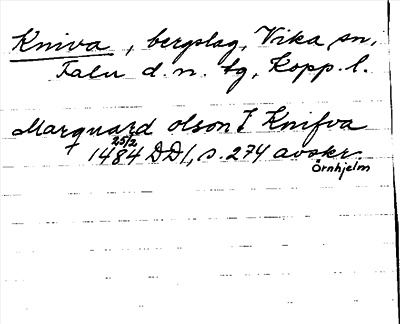 Kniva, bergslag, Vika sn,
Falu d. n. tg, Kopp. l.
Marquard olson I Knifva
25/2
1484 DD1, s. 274 avskr.
Örnhjelm